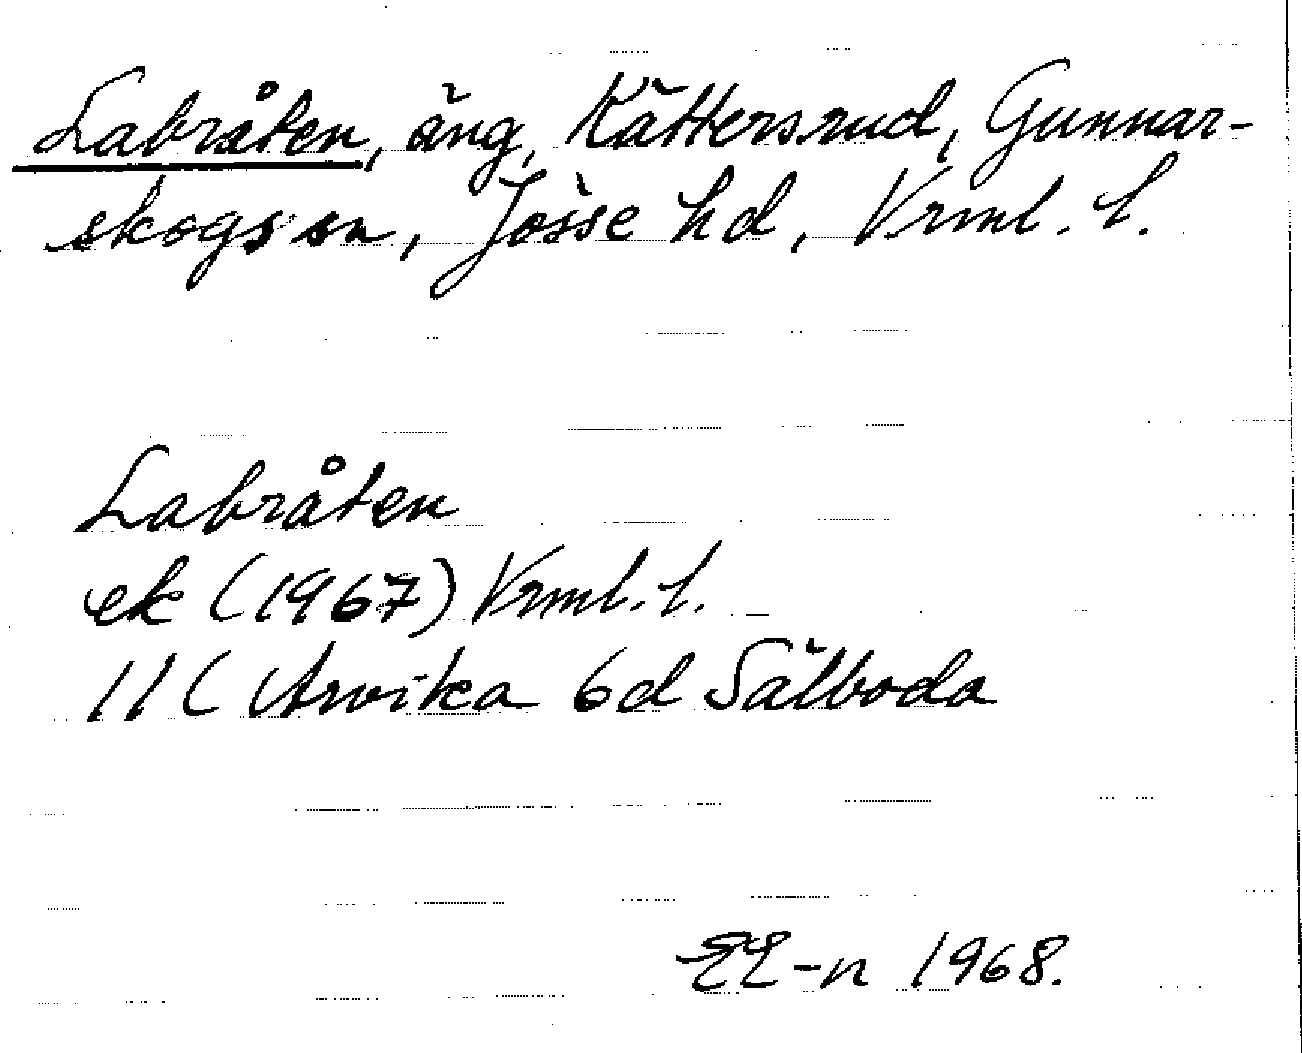 Labråten, äng, Kättersrud, Gunnar-
skogs sn, Jösse hd, Vrml. l.
Labråten
ek (1967) Vrml. l.
11C Arvika 6d Sälboda
EE-n 1968.